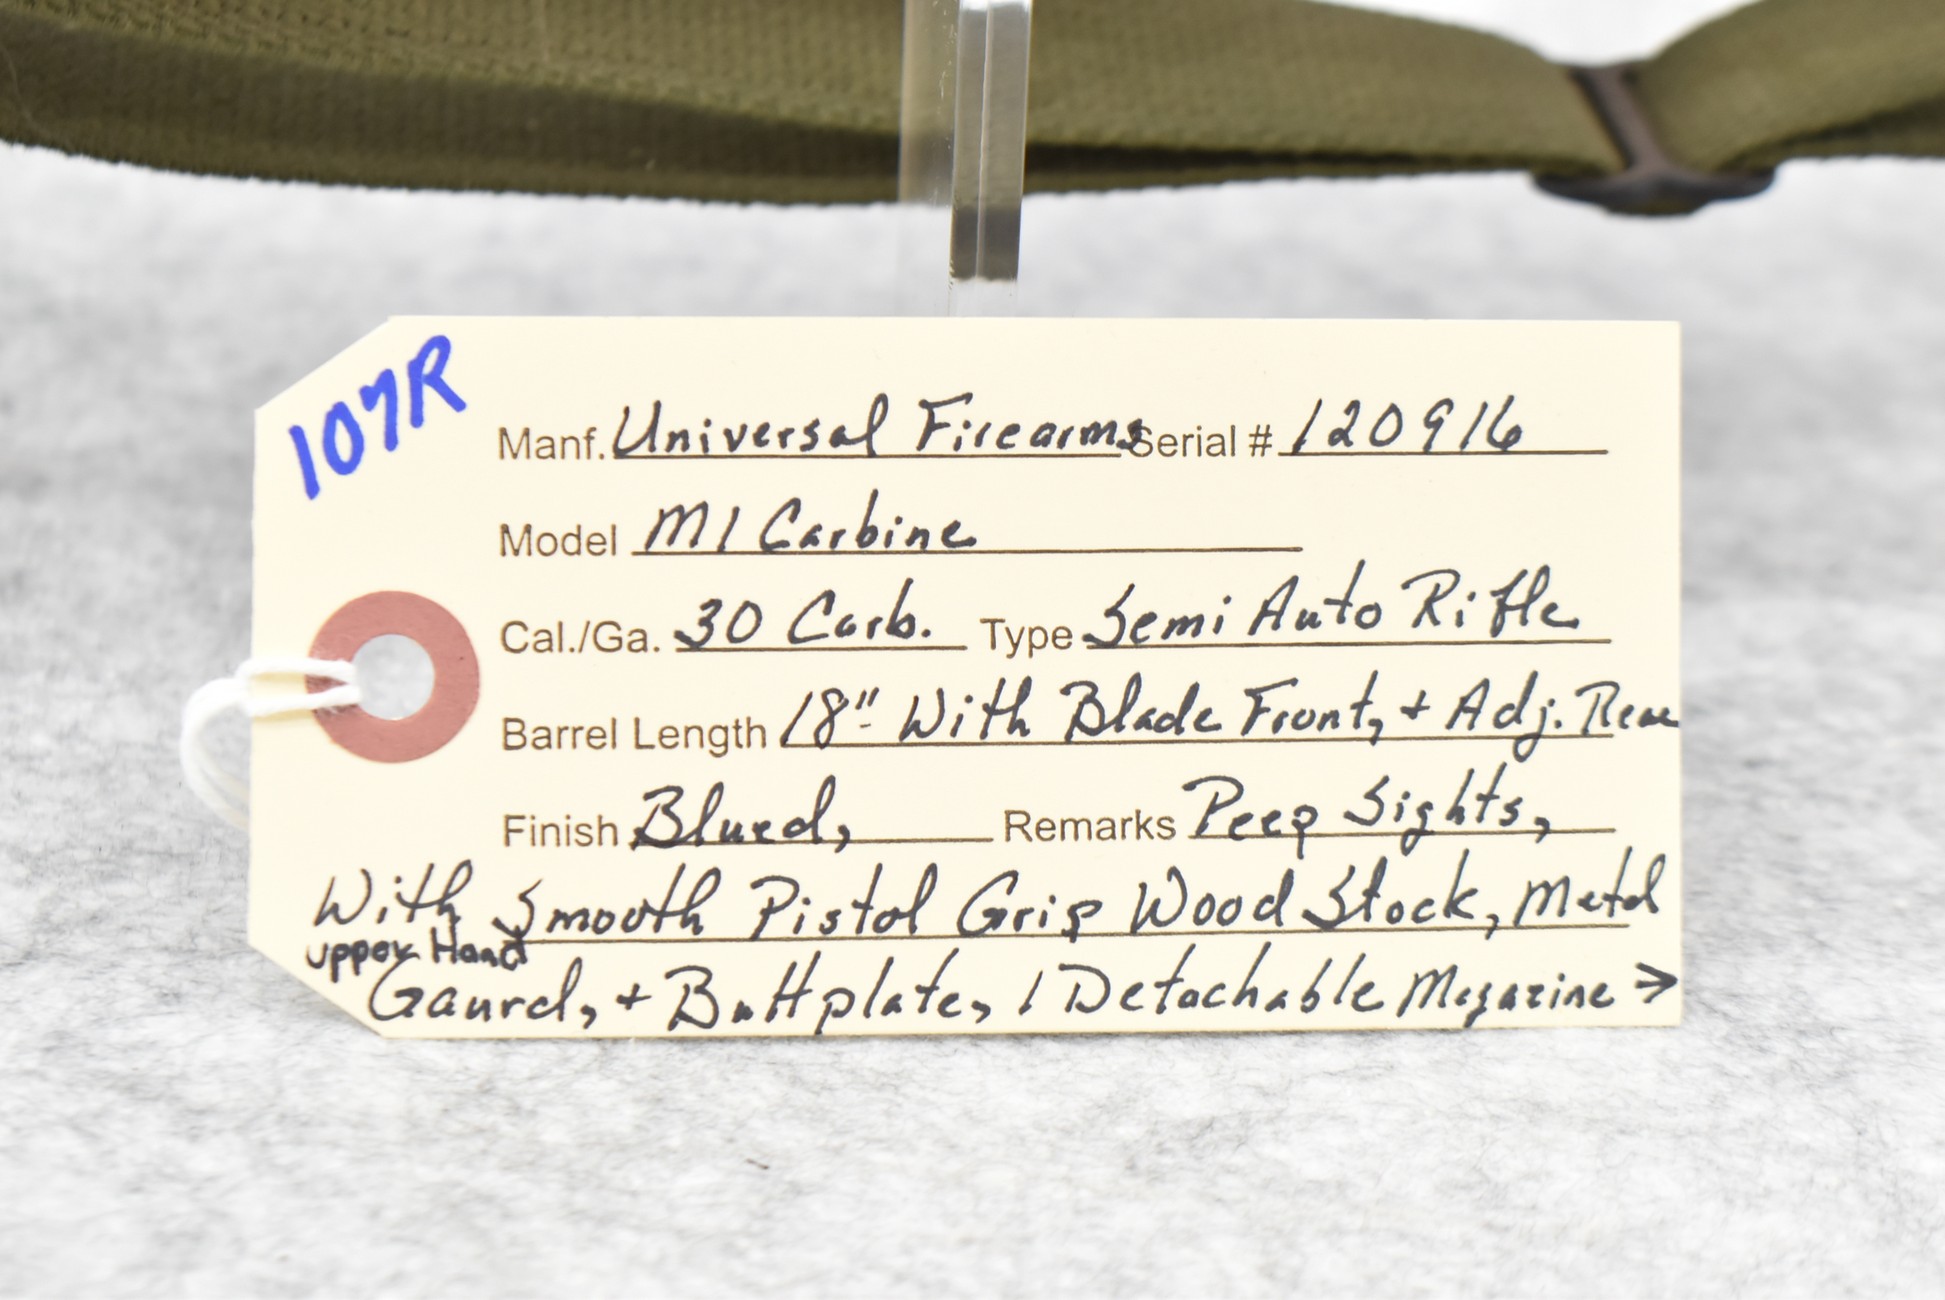 107R
Manf. Universal Firearms Serial # 120916
Model M1 Carbine
Cal./Ga. 30 Carb. Type Semi Auto Rifle
Barrel Length 18" With Blade Front, + Adj. Rear
Finish Blued, Remarks Peep Sights,
With Smooth Pistol Grip Wood Stock, Metal
upper Hand
Gaurd, + Buttplate, 1 Detachable Magazine →